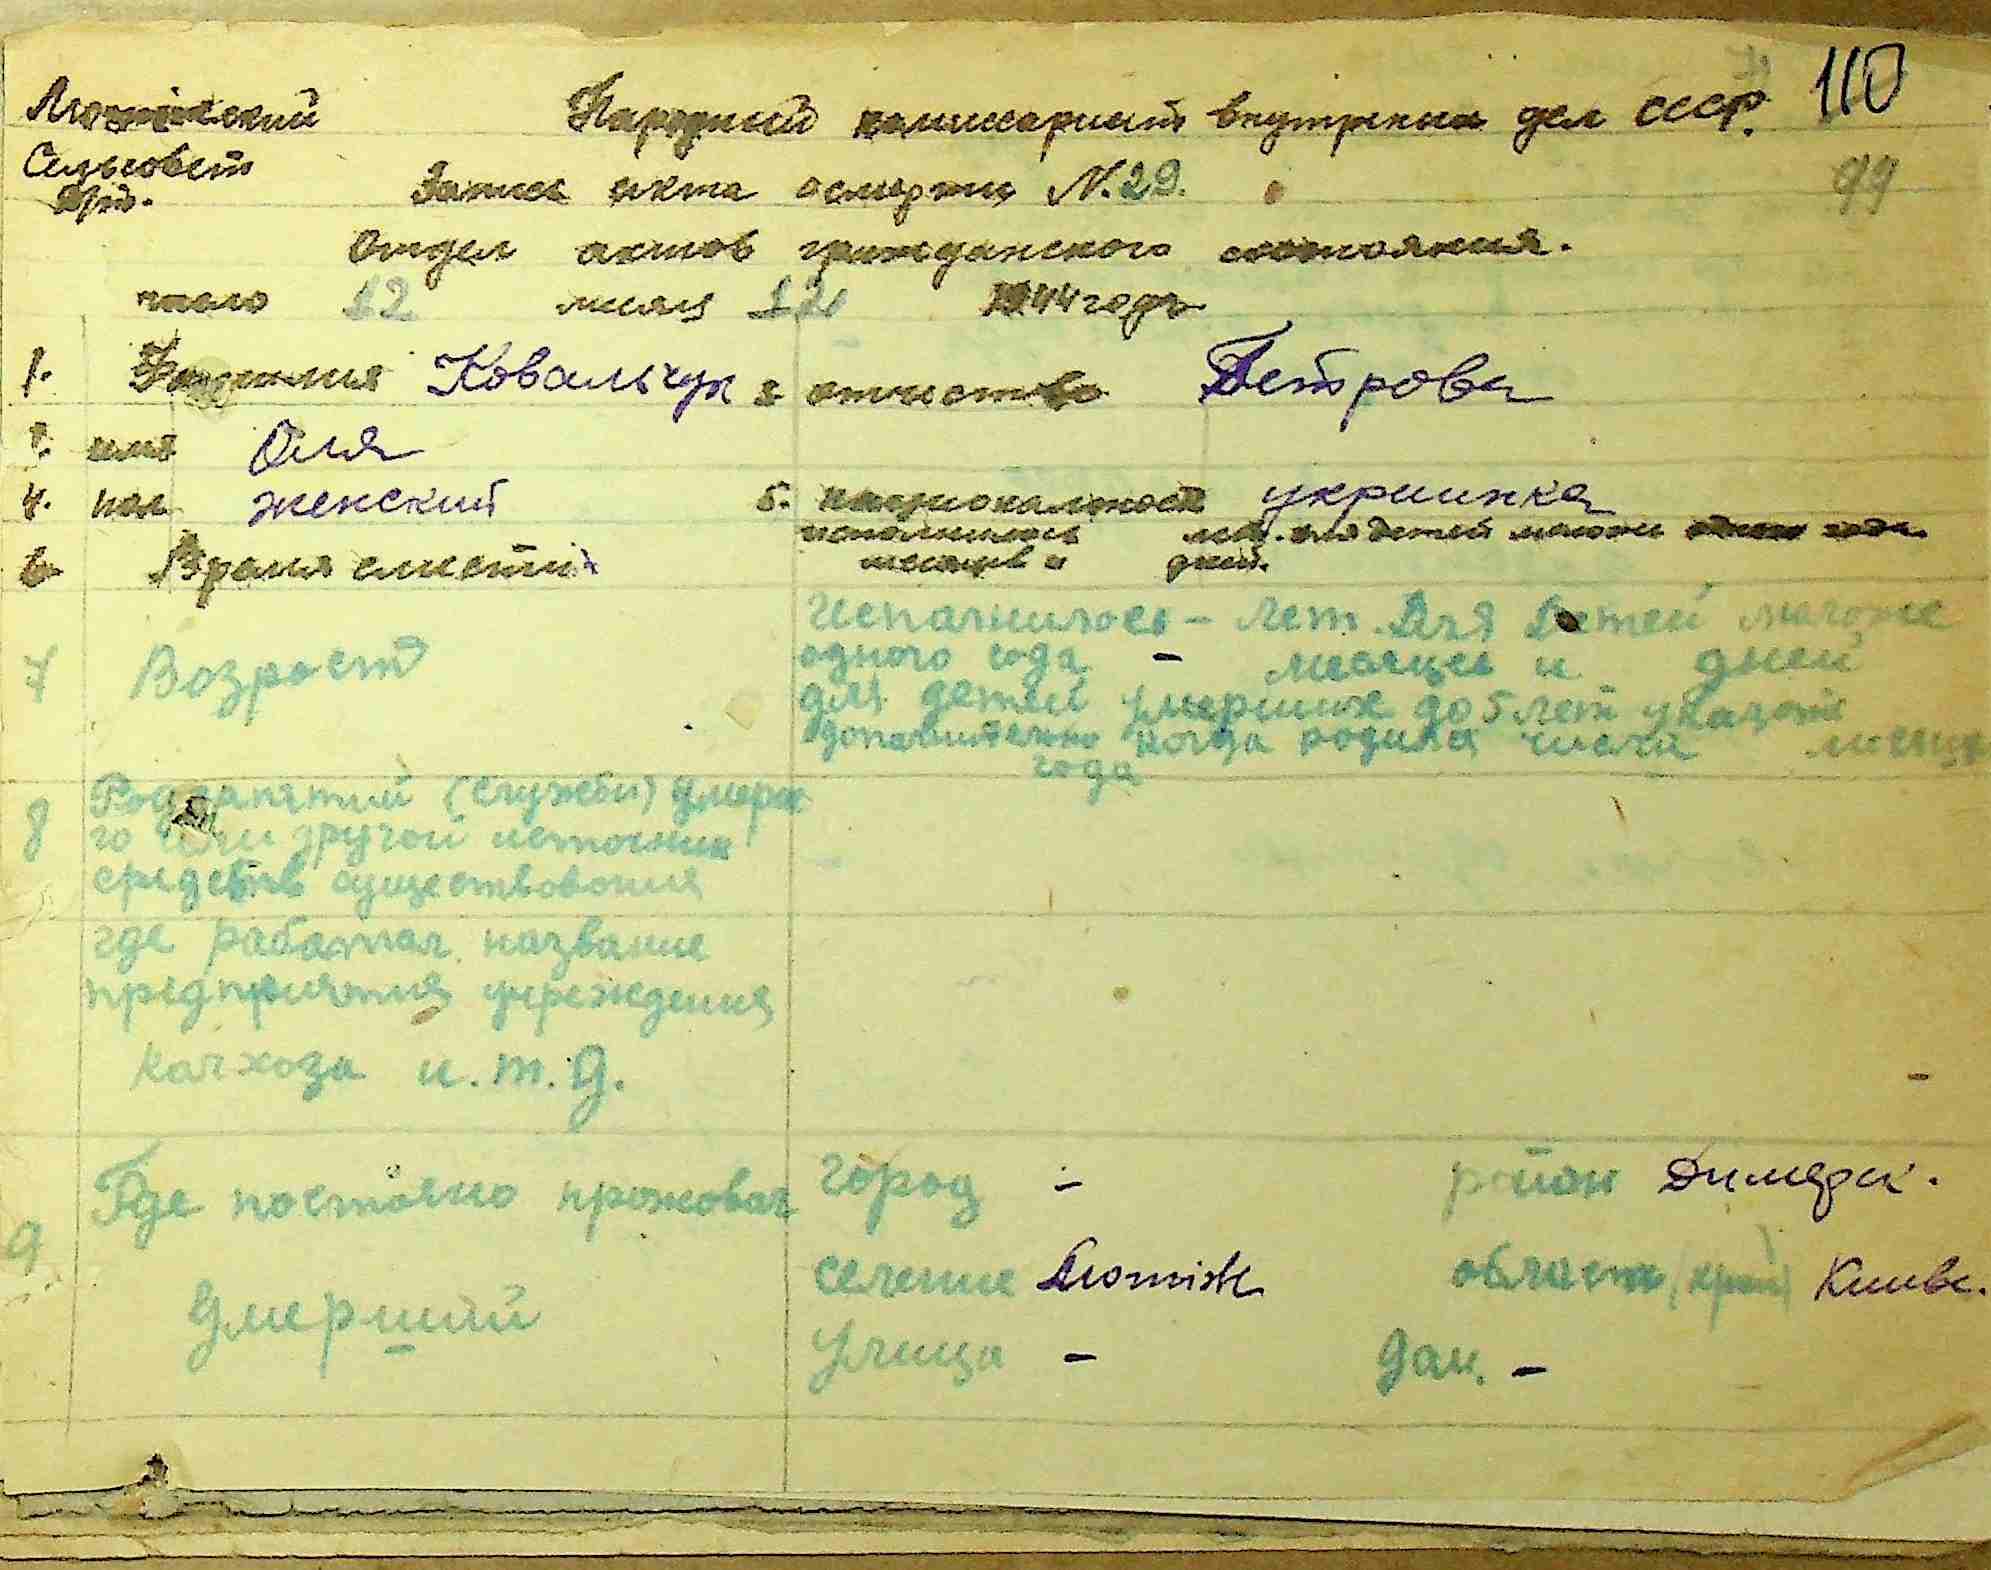 110
Лютіжский Народный комиссариат внутрених дел СССР.
Сельсовет Запись акта осмерти N.29. 99
Отдел актов гражданского состояния.
число 12 месяц 12 1944 годъ
1. Фамилия Ковальчук 3 отчество Петрова
2. имя Оля
4. пол женский 5. национальност украинка
исполнилось лет. для детей моложе одного года
6 Время смерти месяцев и дней.
7 Возраст
Исполнилось - лет. Для детей моложе
одного года - месяцев и дней
для детей умерших до 5 лет указат
дополнително когда родился числа месяца
года
8 Род занятий (службы) умерш
го или другой источник
средств существования
где работал. название
предприятия учреждения
колхоза и.т.д.
-
9 Где постояно прожовал
Умерший
город - район Димерск.
селение Лютіж област (край) Киивс.
Улица - дом. -